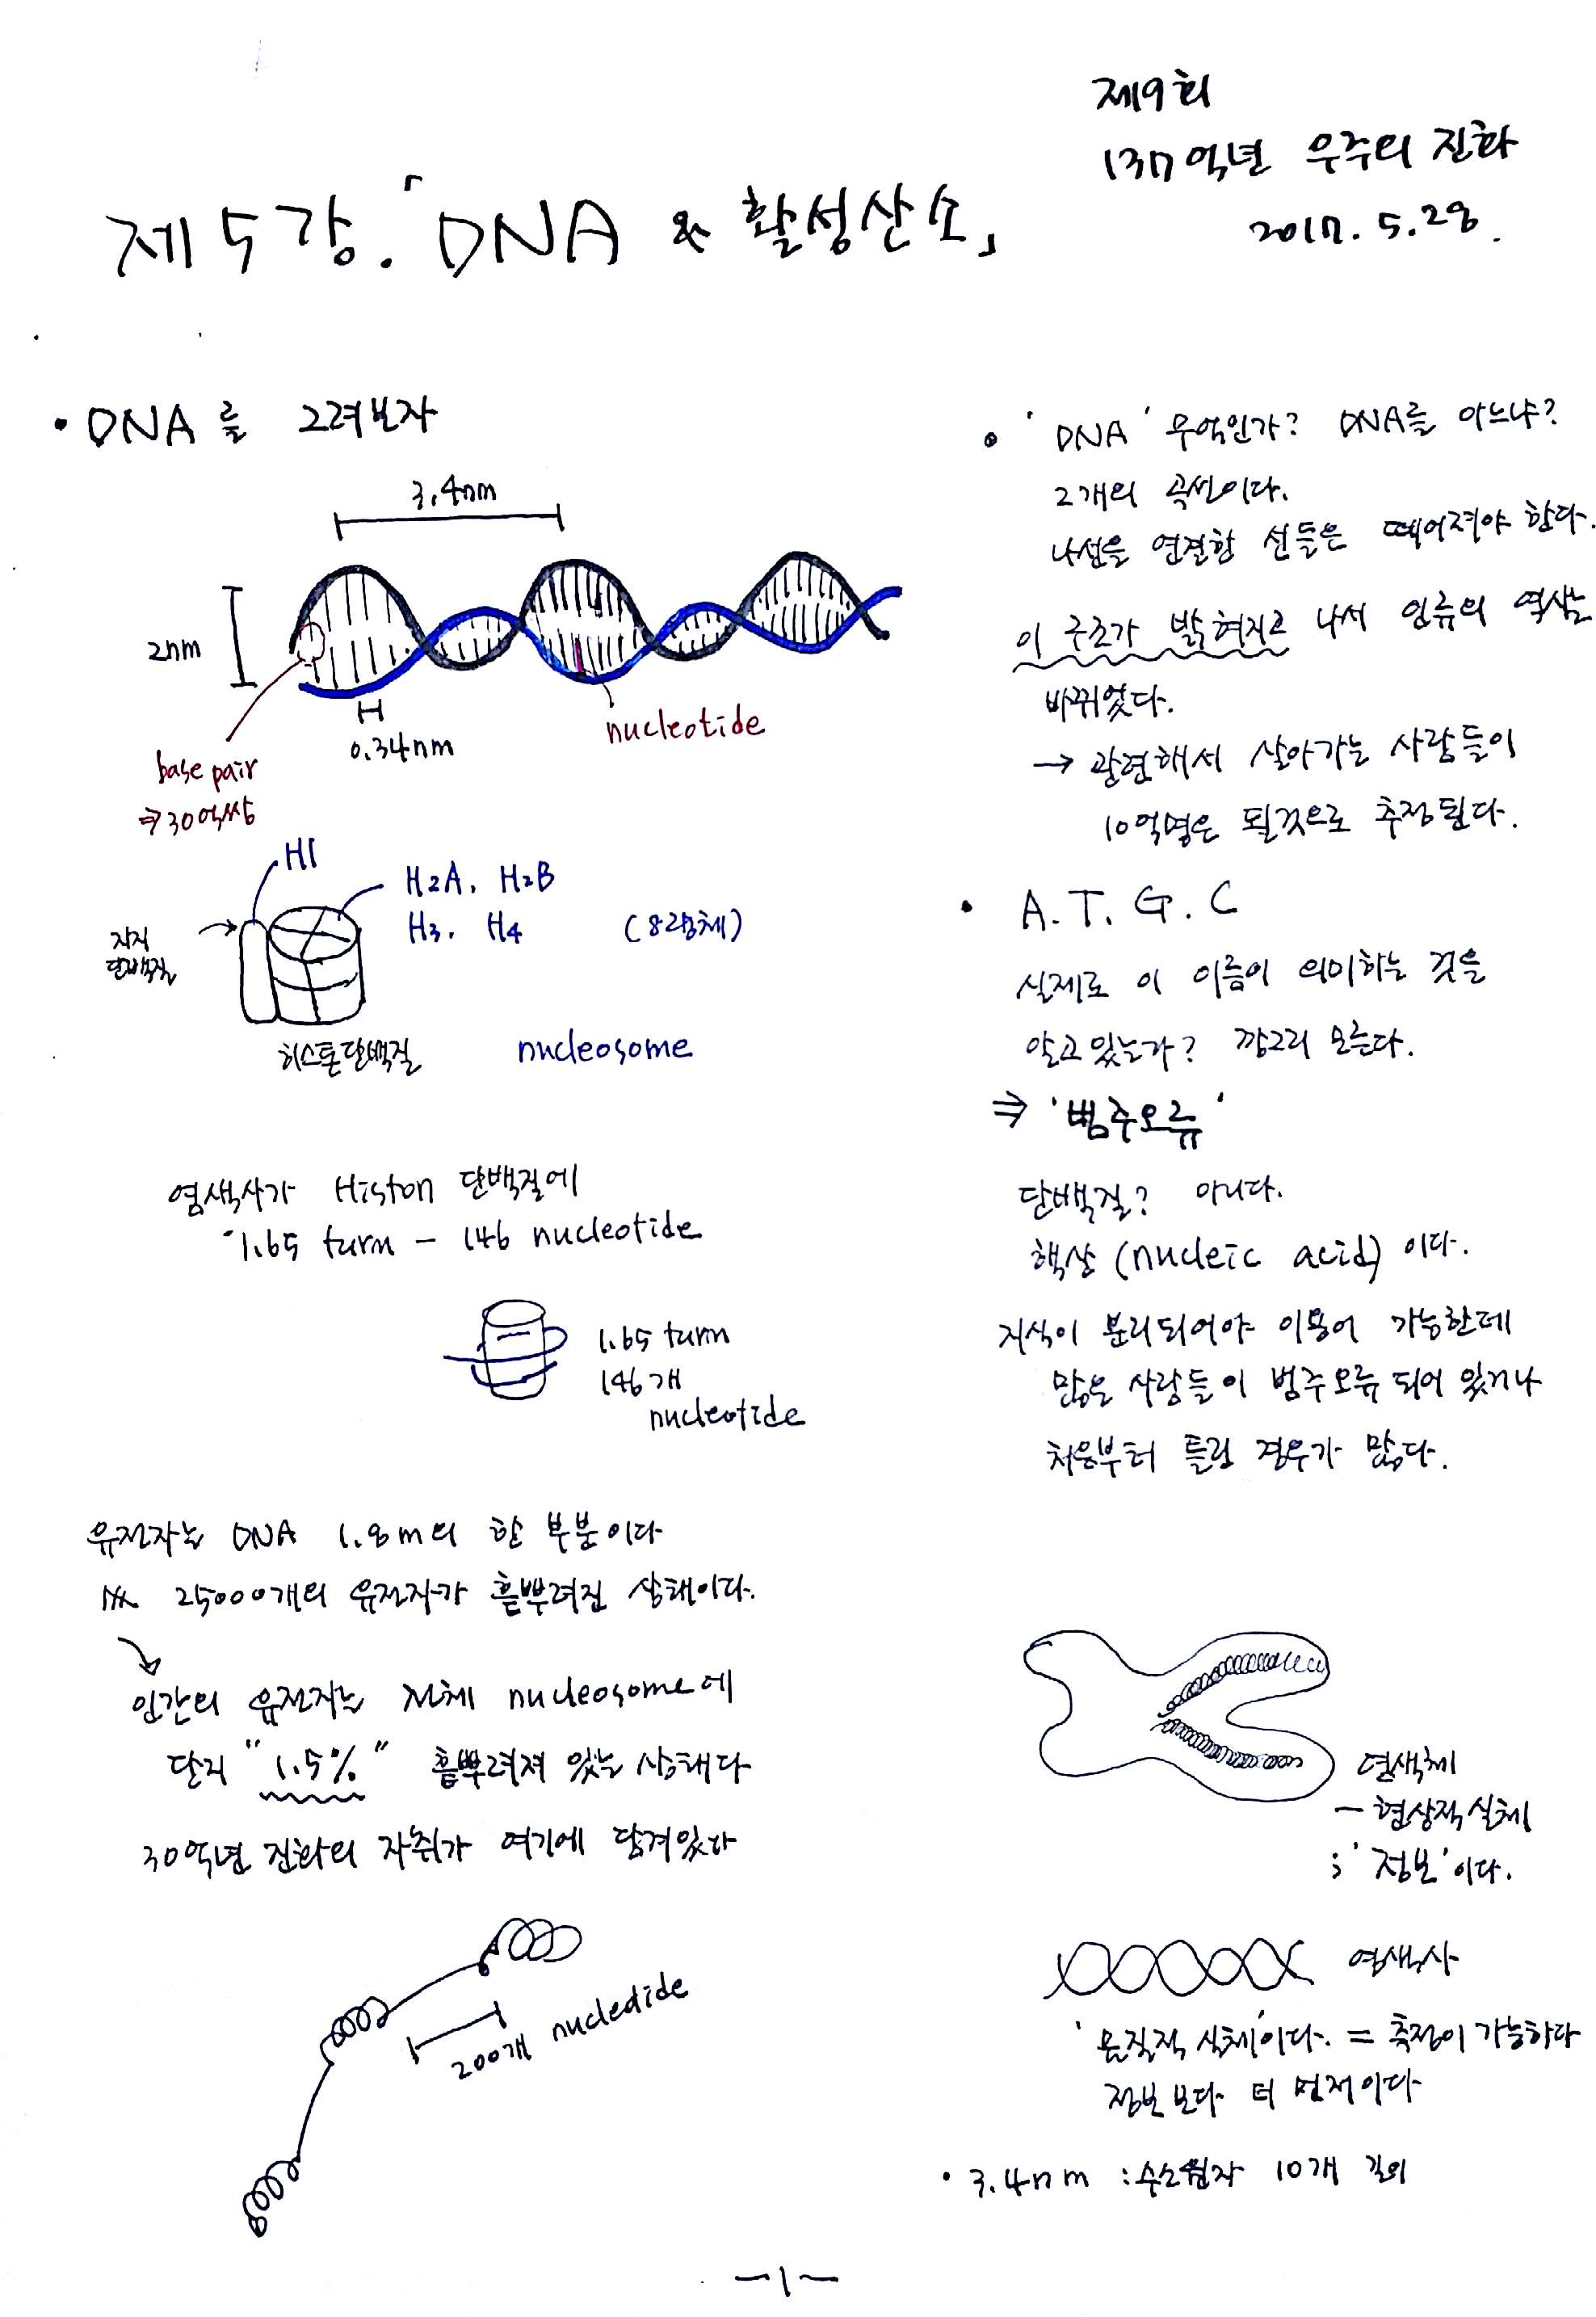 제9회
137억년 우주의 진화
2017. 5. 28.
제5강. 「DNA & 활성산소」
• DNA를 그려보자
3.4nm
2nm
0.34nm
nucleotide
base pair
⇒ 30억쌍
H1
H2A, H2B
H3, H4 (8량체)
지지
단백질
히스톤단백질 nucleosome
염색사가 Histon 단백질에
1.65 turn – 146 nucleotide
1.65 turn
146개
nucleotide
유전자는 DNA 1.8m의 한 부분이다
25000개의 유전자가 흩뿌려진 상태이다.
인간의 유전자는 전체 nucleosome에
단지 "1.5%" 흩뿌려져 있는 상태다
30억년 진화의 자취가 여기에 담겨있다
200개 nucleotide
• 'DNA' 무엇인가? DNA를 아느냐?
2개의 곡선이다.
나선을 연결한 선들은 떼어져야 한다.
이 구조가 밝혀지고 나서 인류의 역사는
바뀌었다.
→ 관련해서 살아가는 사람들이
10억명은 될것으로 추정된다.
• A. T. G. C
실제로 이 이름이 의미하는 것을
알고 있는가? 깡그리 모른다.
⇒ '범주오류'
단백질? 아니다.
핵산 (nucleic acid) 이다.
지식이 분리되어야 이용이 가능한데
많은 사람들이 범주오류 되어 있거나
처음부터 틀린 경우가 많다.
염색체
– 현상적 실체
; '정보'이다.
염색사
'물질적 실체'이다. = 측정이 가능하다
정보 보다 더 먼저이다
• 3.4nm : 수소원자 10개 길이
–1–